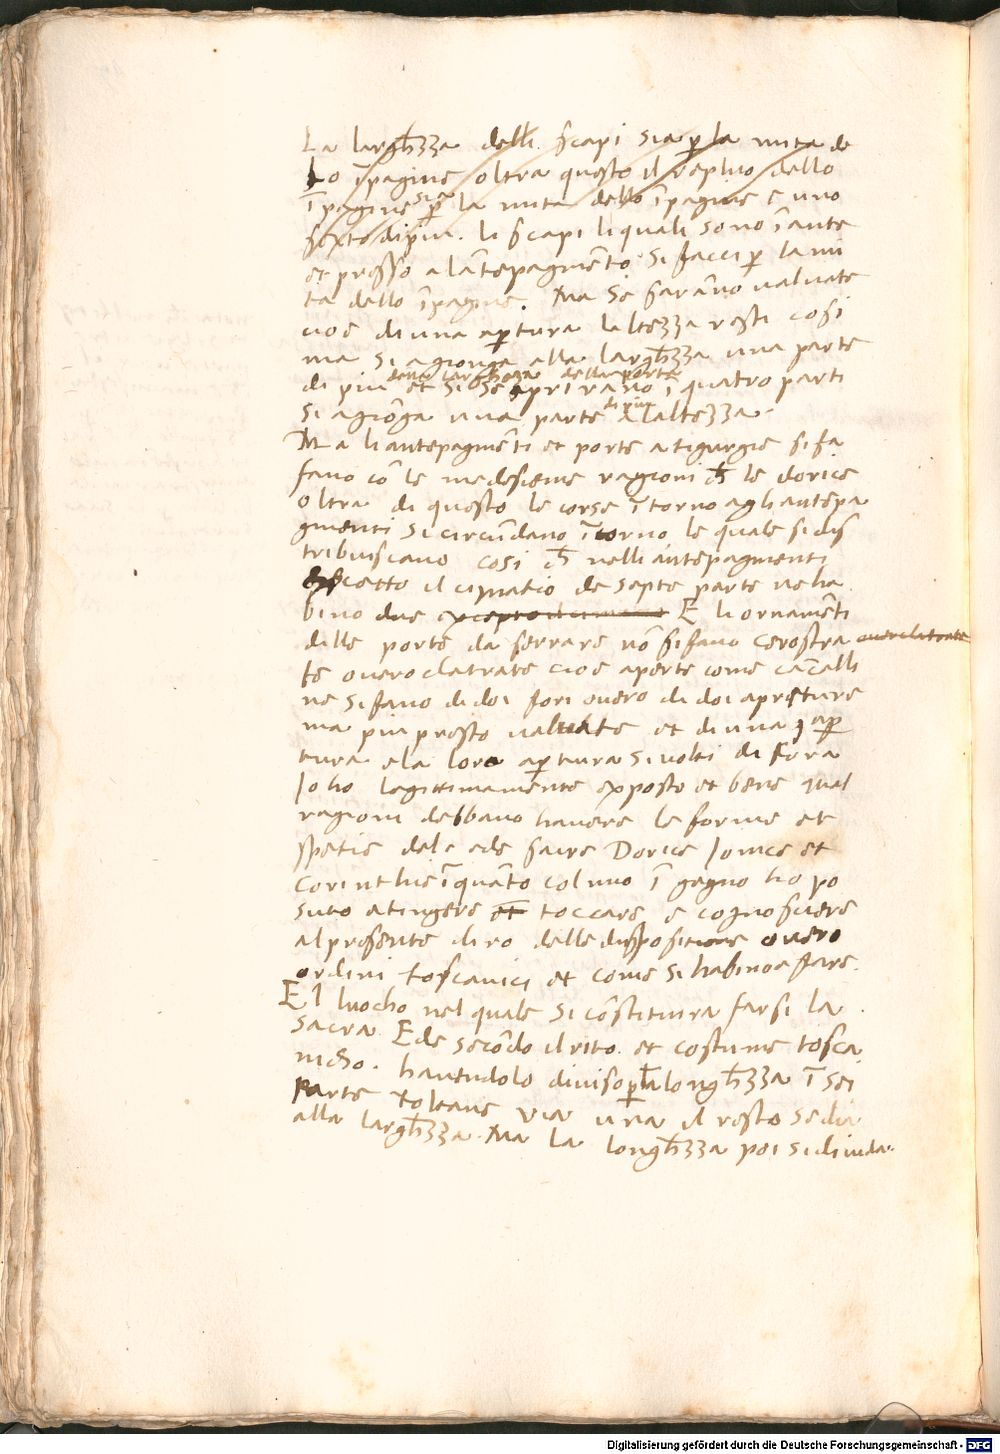 La largh̄ȝȝa delli scapi sia p̱ la mita de
lo īpagine oltra questo il repluo dello
īpagine sia p̱ la mita dello īpagine e uno
sexto di piu. li scapi li quali sono inante
et presso a lātepagmēto si facci p̱ la mi
ta dello īpagine. Ma se sarāno valvate
cioe di una ap̱tura laltezza resti cosi
ma si agionga alla largh̄ȝȝa una parte
di piu della largheza della porta et si se aprirano ī quatro parti
si agiōga una parte di piu a laltezza.
Ma li antepagmēti et porte atigurgie si fa
fano cō le medesieme ragioni ch̄ le dorice
oltra di questo le corse ītorno agli antepa
gmenti si circūdano ītorno le quale si dis
tribuiscano cosi ch̄ nelli antepagmenti
excetto il cymatio de sapte parte ne ha
bino due E li ornamēti
dille porte da serrare nō si fano cerostra
te overo clatrate cioe aperte come cācelli
ne si fano di doi fori overo di doi apreture
ma piu presto valvate et di una ap̱
tura e la loro ap̱tura si volti di fora
Io ho legittimamente exposto et bene qual
ragioni debbano havere le forme et
spetie dele ede sacre Dorice Ionice et
Corinthie īquāto col mio īgegno ho po
suto atingere et toccare e cognoscere
al presente diro delle dispositione overo
ordini toscanici et come si habino a fare.
El luocho nel quale si cōstituira farsi la
sacra Ede secōdo il rito et costume tosca
nicho. havendolo diviso p̱ la longh̄ȝȝa ī sei
parte toltane via una il resto se dia
alla largh̄ȝȝa. Ma la longh̄ȝȝa poi si divida.
Digitalisierung gefördert durch die Deutsche Forschungsgemeinschaft - DFG